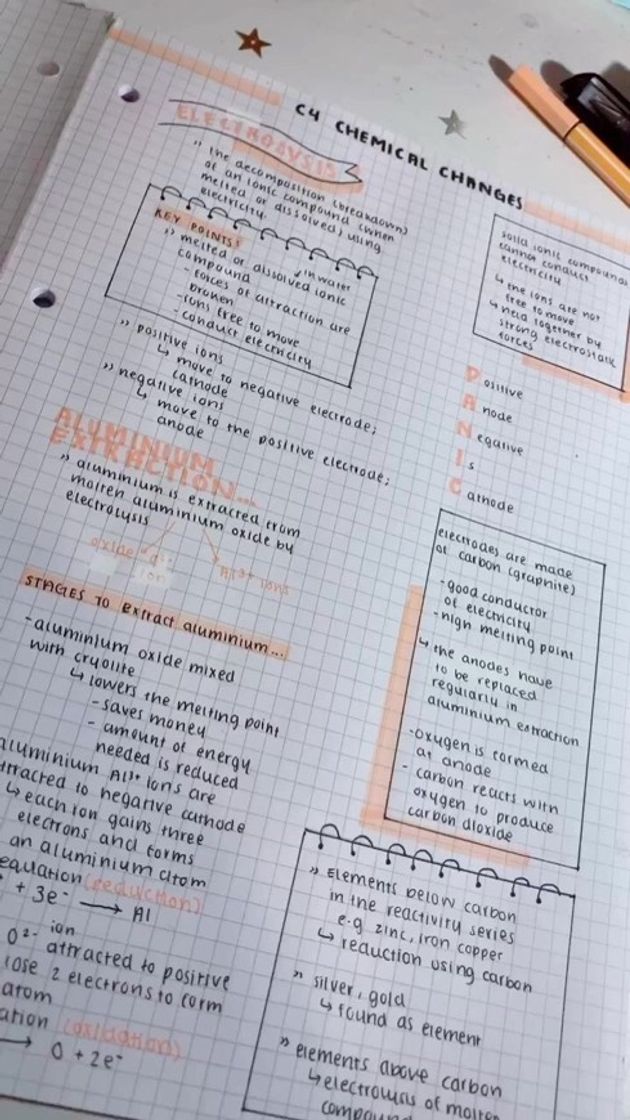 C4 CHEMICAL CHANGES
ELECTROLYSIS
" the decomposition (breakdown)
of an ionic compound (when
melted or dissolved) using
electricity.
KEY POINTS:
in water
" melted or dissolved ionic
compound
- forces of attraction are
broken
- ions free to move
- conduct electricity
" positive ions
↳ move to negative electrode;
cathode
" negative ions
↳ move to the positive electrode;
anode
ALUMINIUM
EXTRACTION...
" aluminium is extracted from
molten aluminium oxide by
electrolysis
oxide
ion
Al³⁺ ions
STAGES TO extract aluminium...
- aluminium oxide mixed
with cryolite
↳ lowers the melting point
- saves money
- amount of energy
needed is reduced
aluminium Al³⁺ ions are
attracted to negative cathode
↳ each ion gains three
electrons and forms
an aluminium atom
equation (reduction)
+ 3e⁻ → Al
O²⁻ ion
attracted to positive
lose 2 electrons to form
atom
(oxidation)
→ O + 2e⁻
solid ionic compounds
cannot conduct
electricity
↳ the ions are not
free to move
↳ held together by
strong electrostatic
forces
Positive
Anode
Negative
Is
Cathode
electrodes are made
of carbon (graphite)
- good conductor
of electricity
- high melting point
↳ the anodes have
to be replaced
regularly in
aluminium extraction
- oxygen is formed
at anode
- carbon reacts with
oxygen to produce
carbon dioxide
" Elements below carbon
in the reactivity series
e.g zinc, iron copper
↳ reduction using carbon
" silver, gold
↳ found as element
" elements above carbon
↳ electrolysis of molten